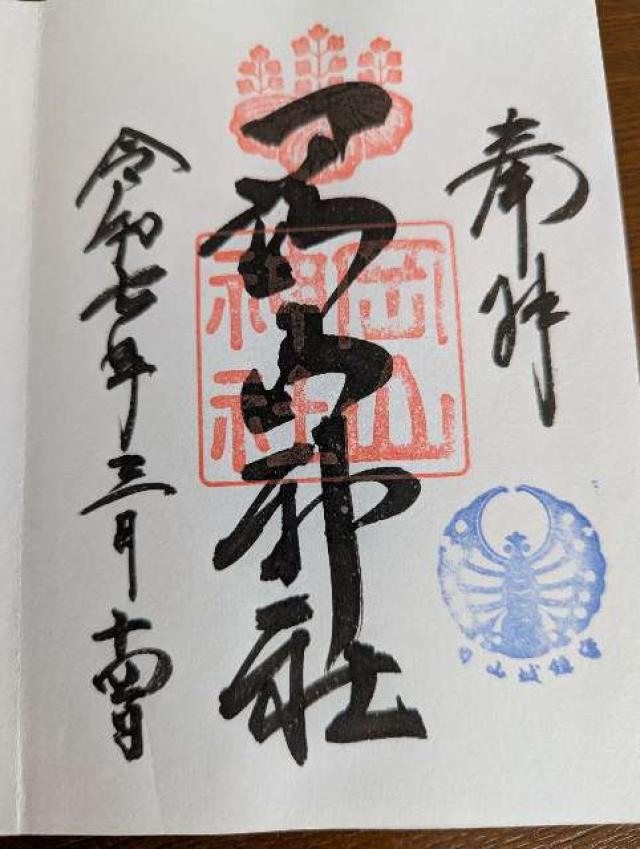 奉拝
岡山神社
岡山
神社
令和七年三月十四日